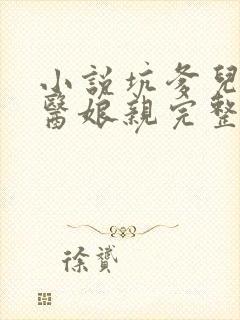 小説坑爹兒
醫娘親完整
徐贇